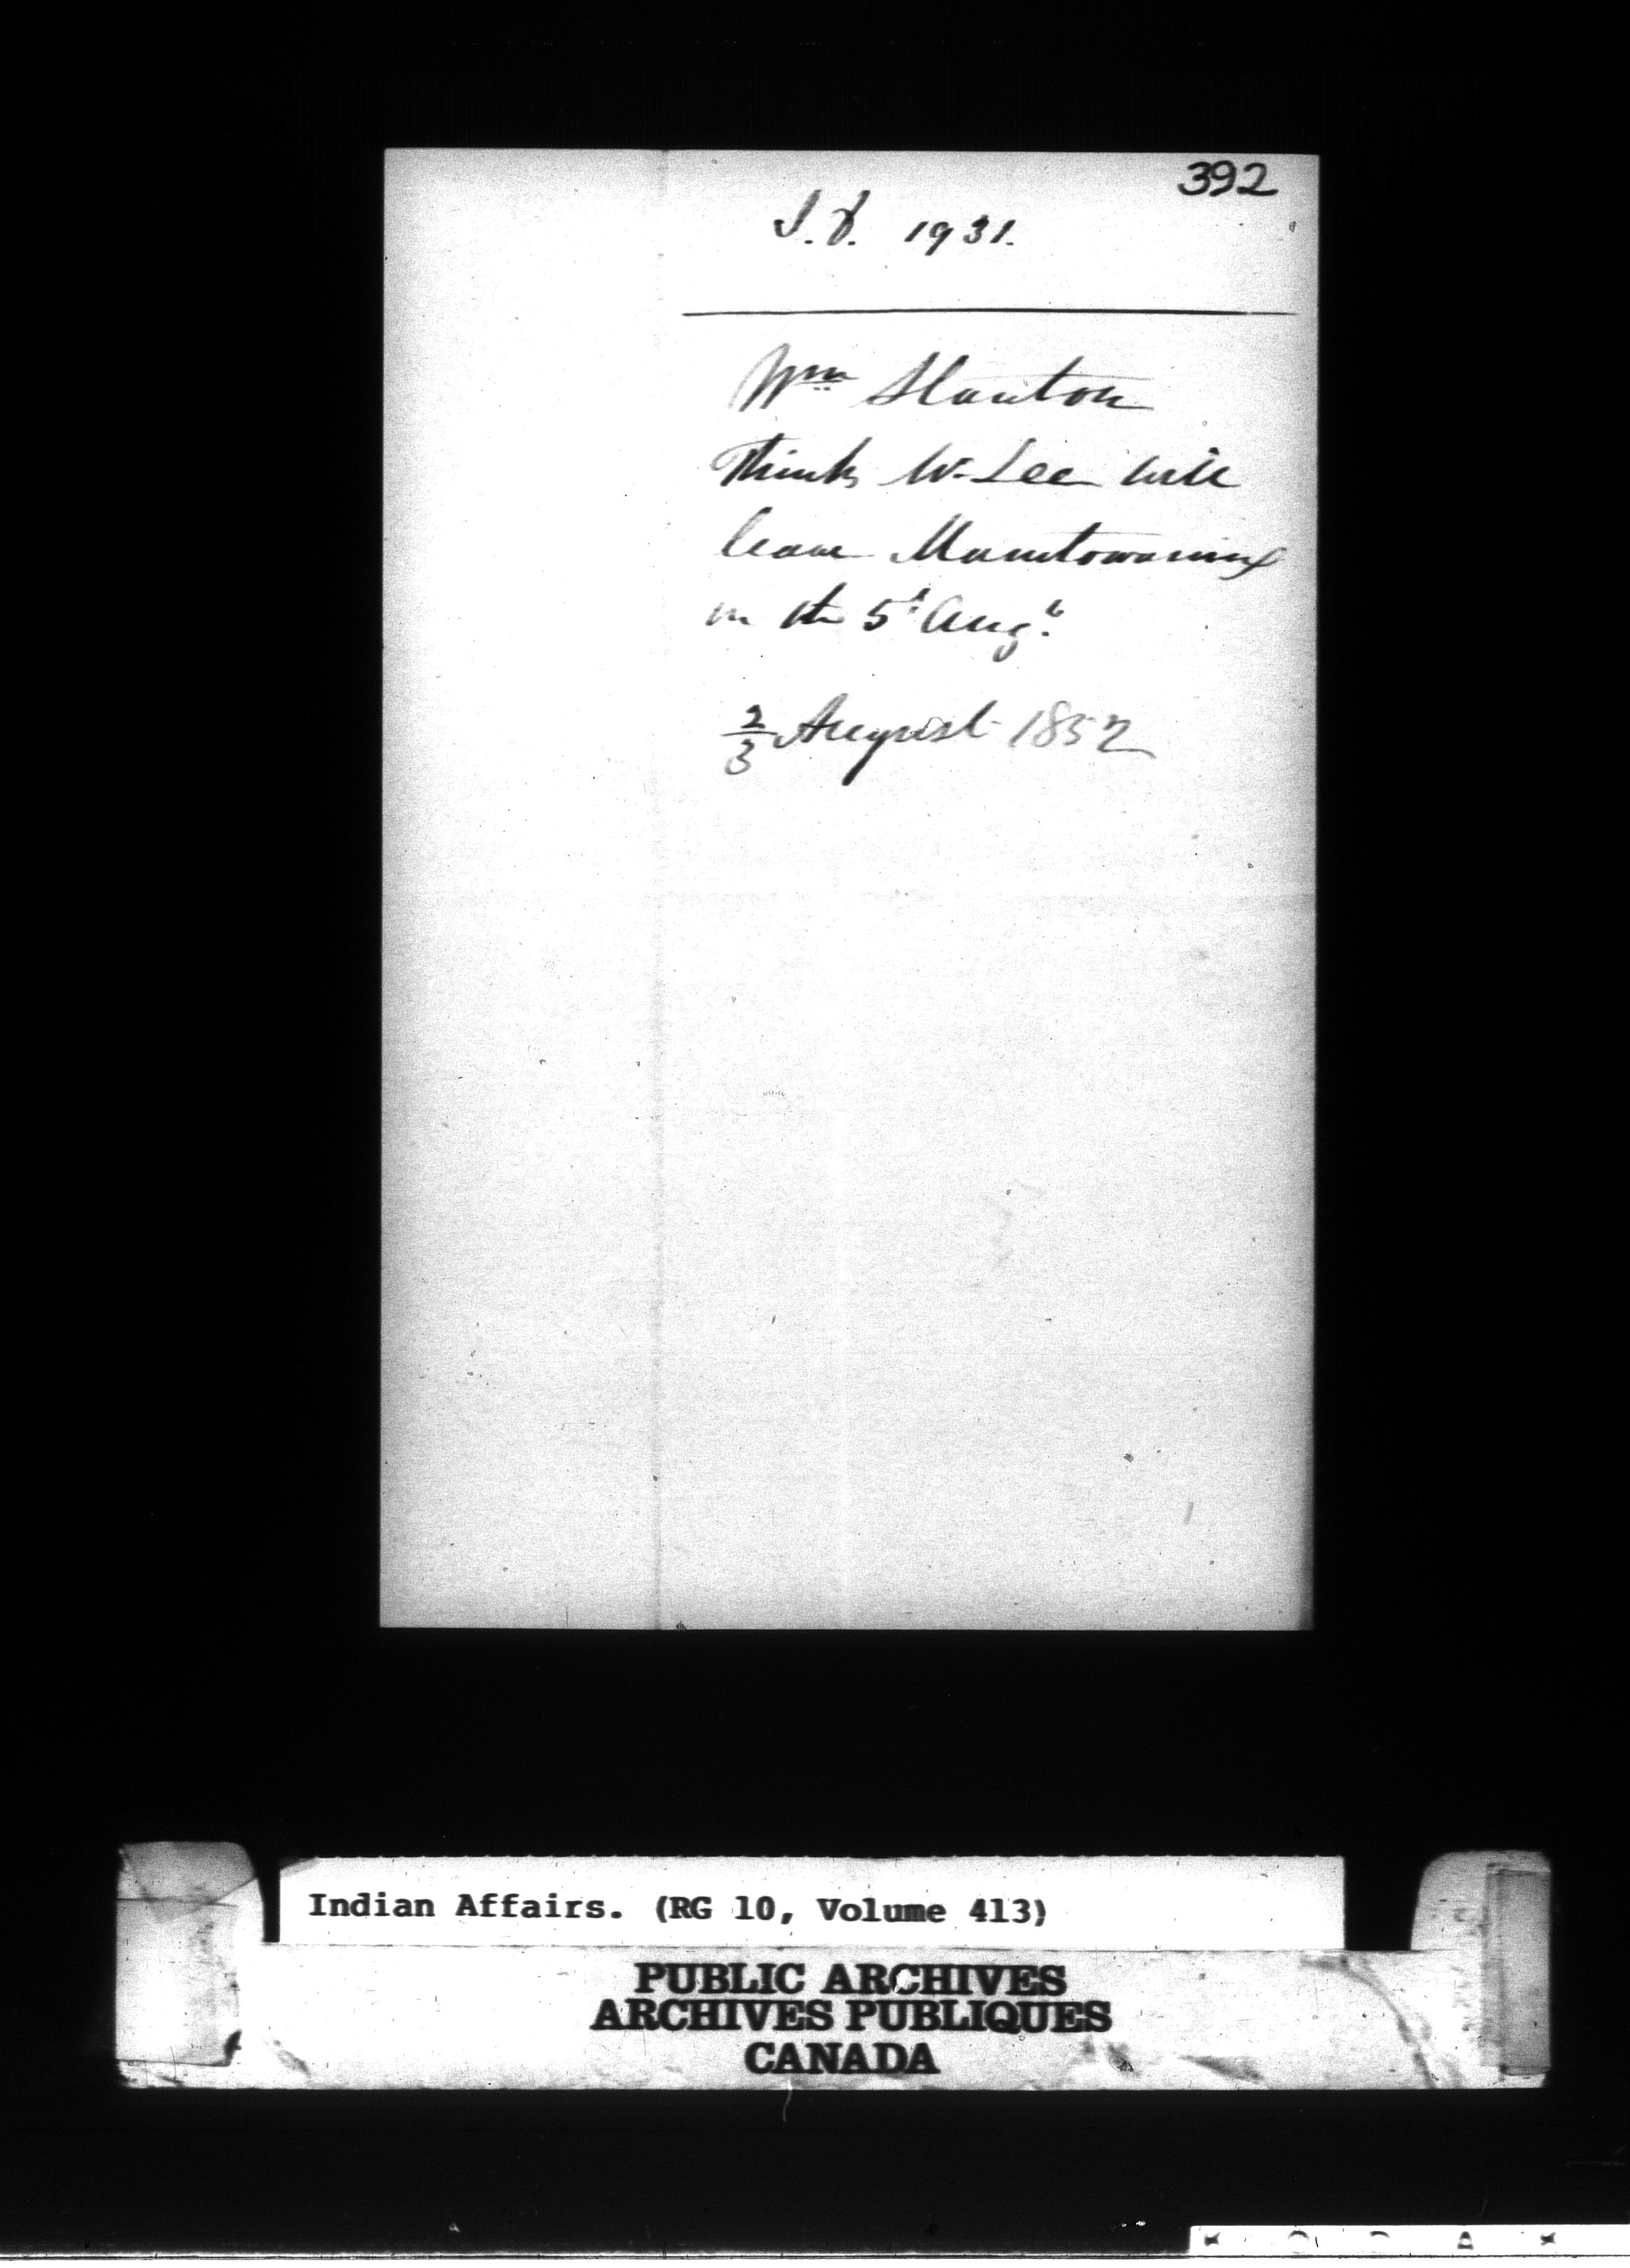 392
I.D. 1931.
Wm Stanton
Thinks W. Lee will
leave Manitowaning
on the 5t Augt.
2/3 August 1852
Indian Affairs. (RG 10, Volume 413)
PUBLIC ARCHIVES
ARCHIVES PUBLIQUES
CANADA
K O D A K